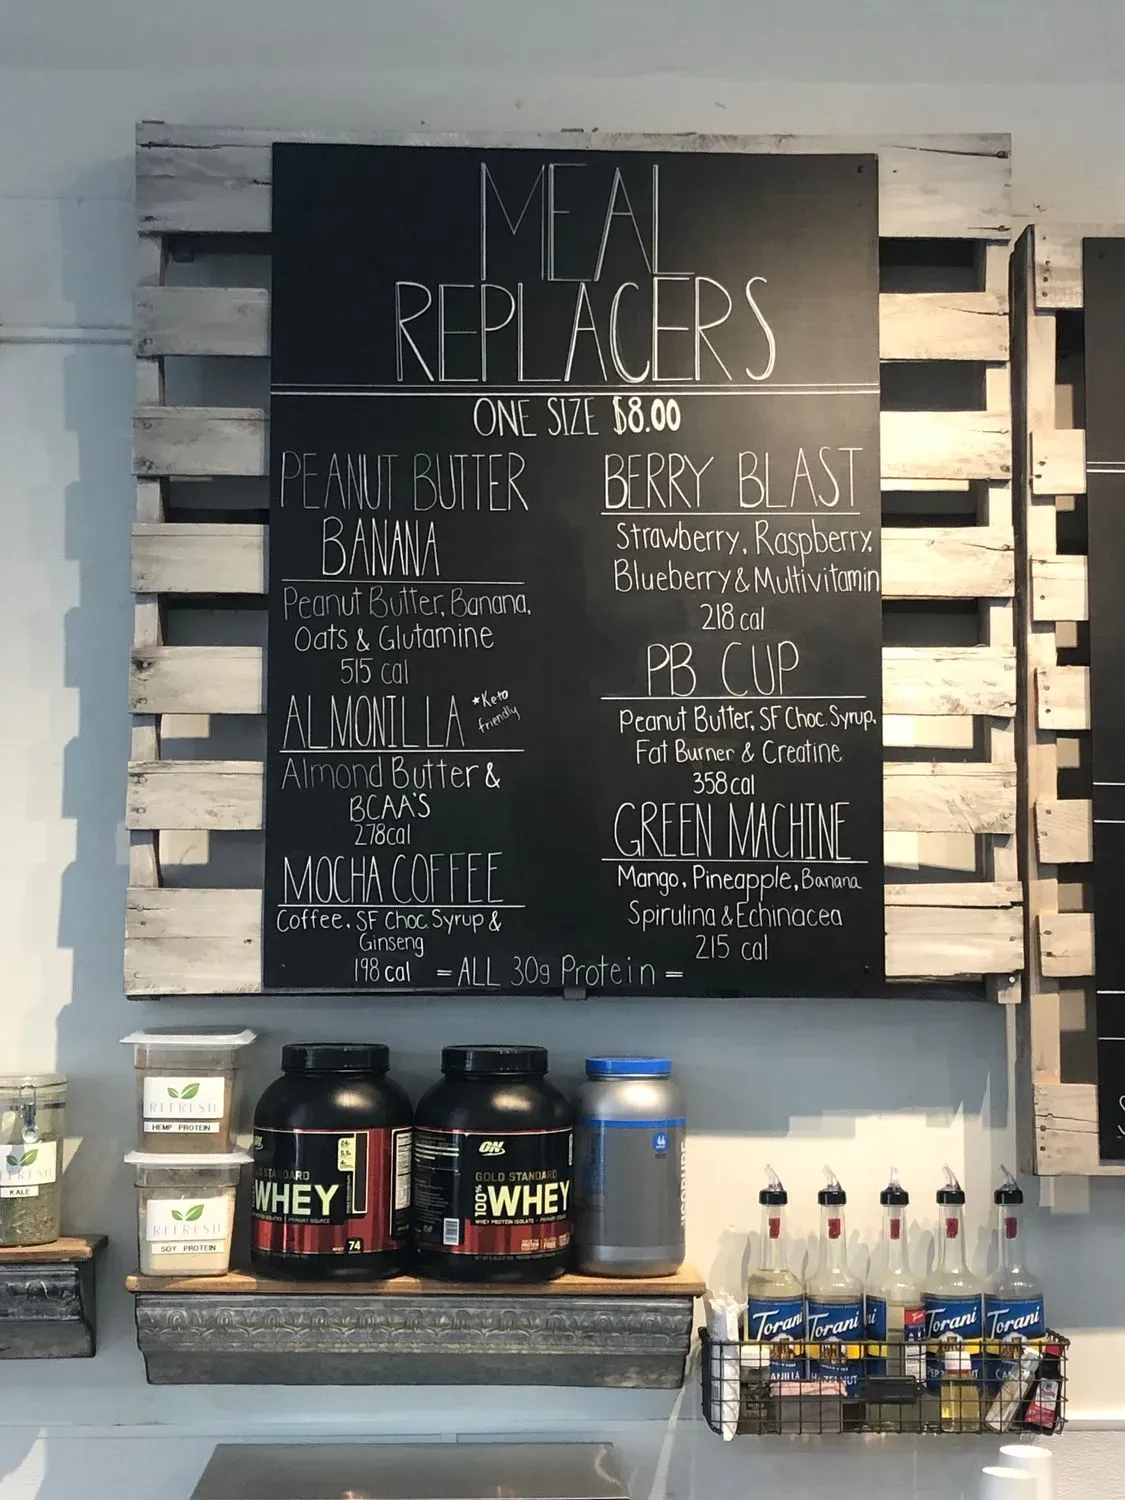 MEAL
REPLACERS
ONE SIZE $8.00
PEANUT BUTTER
BANANA
Peanut Butter, Banana,
Oats & Glutamine
515 cal
ALMONILLA
*Keto
friendly
Almond Butter &
BCAA'S
278cal
MOCHA COFFEE
Coffee, SF Choc. Syrup &
Ginseng
198 cal
BERRY BLAST
Strawberry, Raspberry,
Blueberry & Multivitamin
218 cal
PB CUP
Peanut Butter, SF Choc. Syrup,
Fat Burner & Creatine
358cal
GREEN MACHINE
Mango, Pineapple, Banana
Spirulina & Echinacea
215 cal
=ALL 30g Protein=
REFRESH
HEMP PROTEIN
REFRESH
SOY PROTEIN
REFRESH
KALE
GOLD STANDARD
WHEY
WHEY 74
ON
GOLD STANDARD
100% WHEY
WHEY PROTEIN ISOLATE - PRIMARY SOURCE
Torani
Torani
Torani
Torani
HAZELNUT